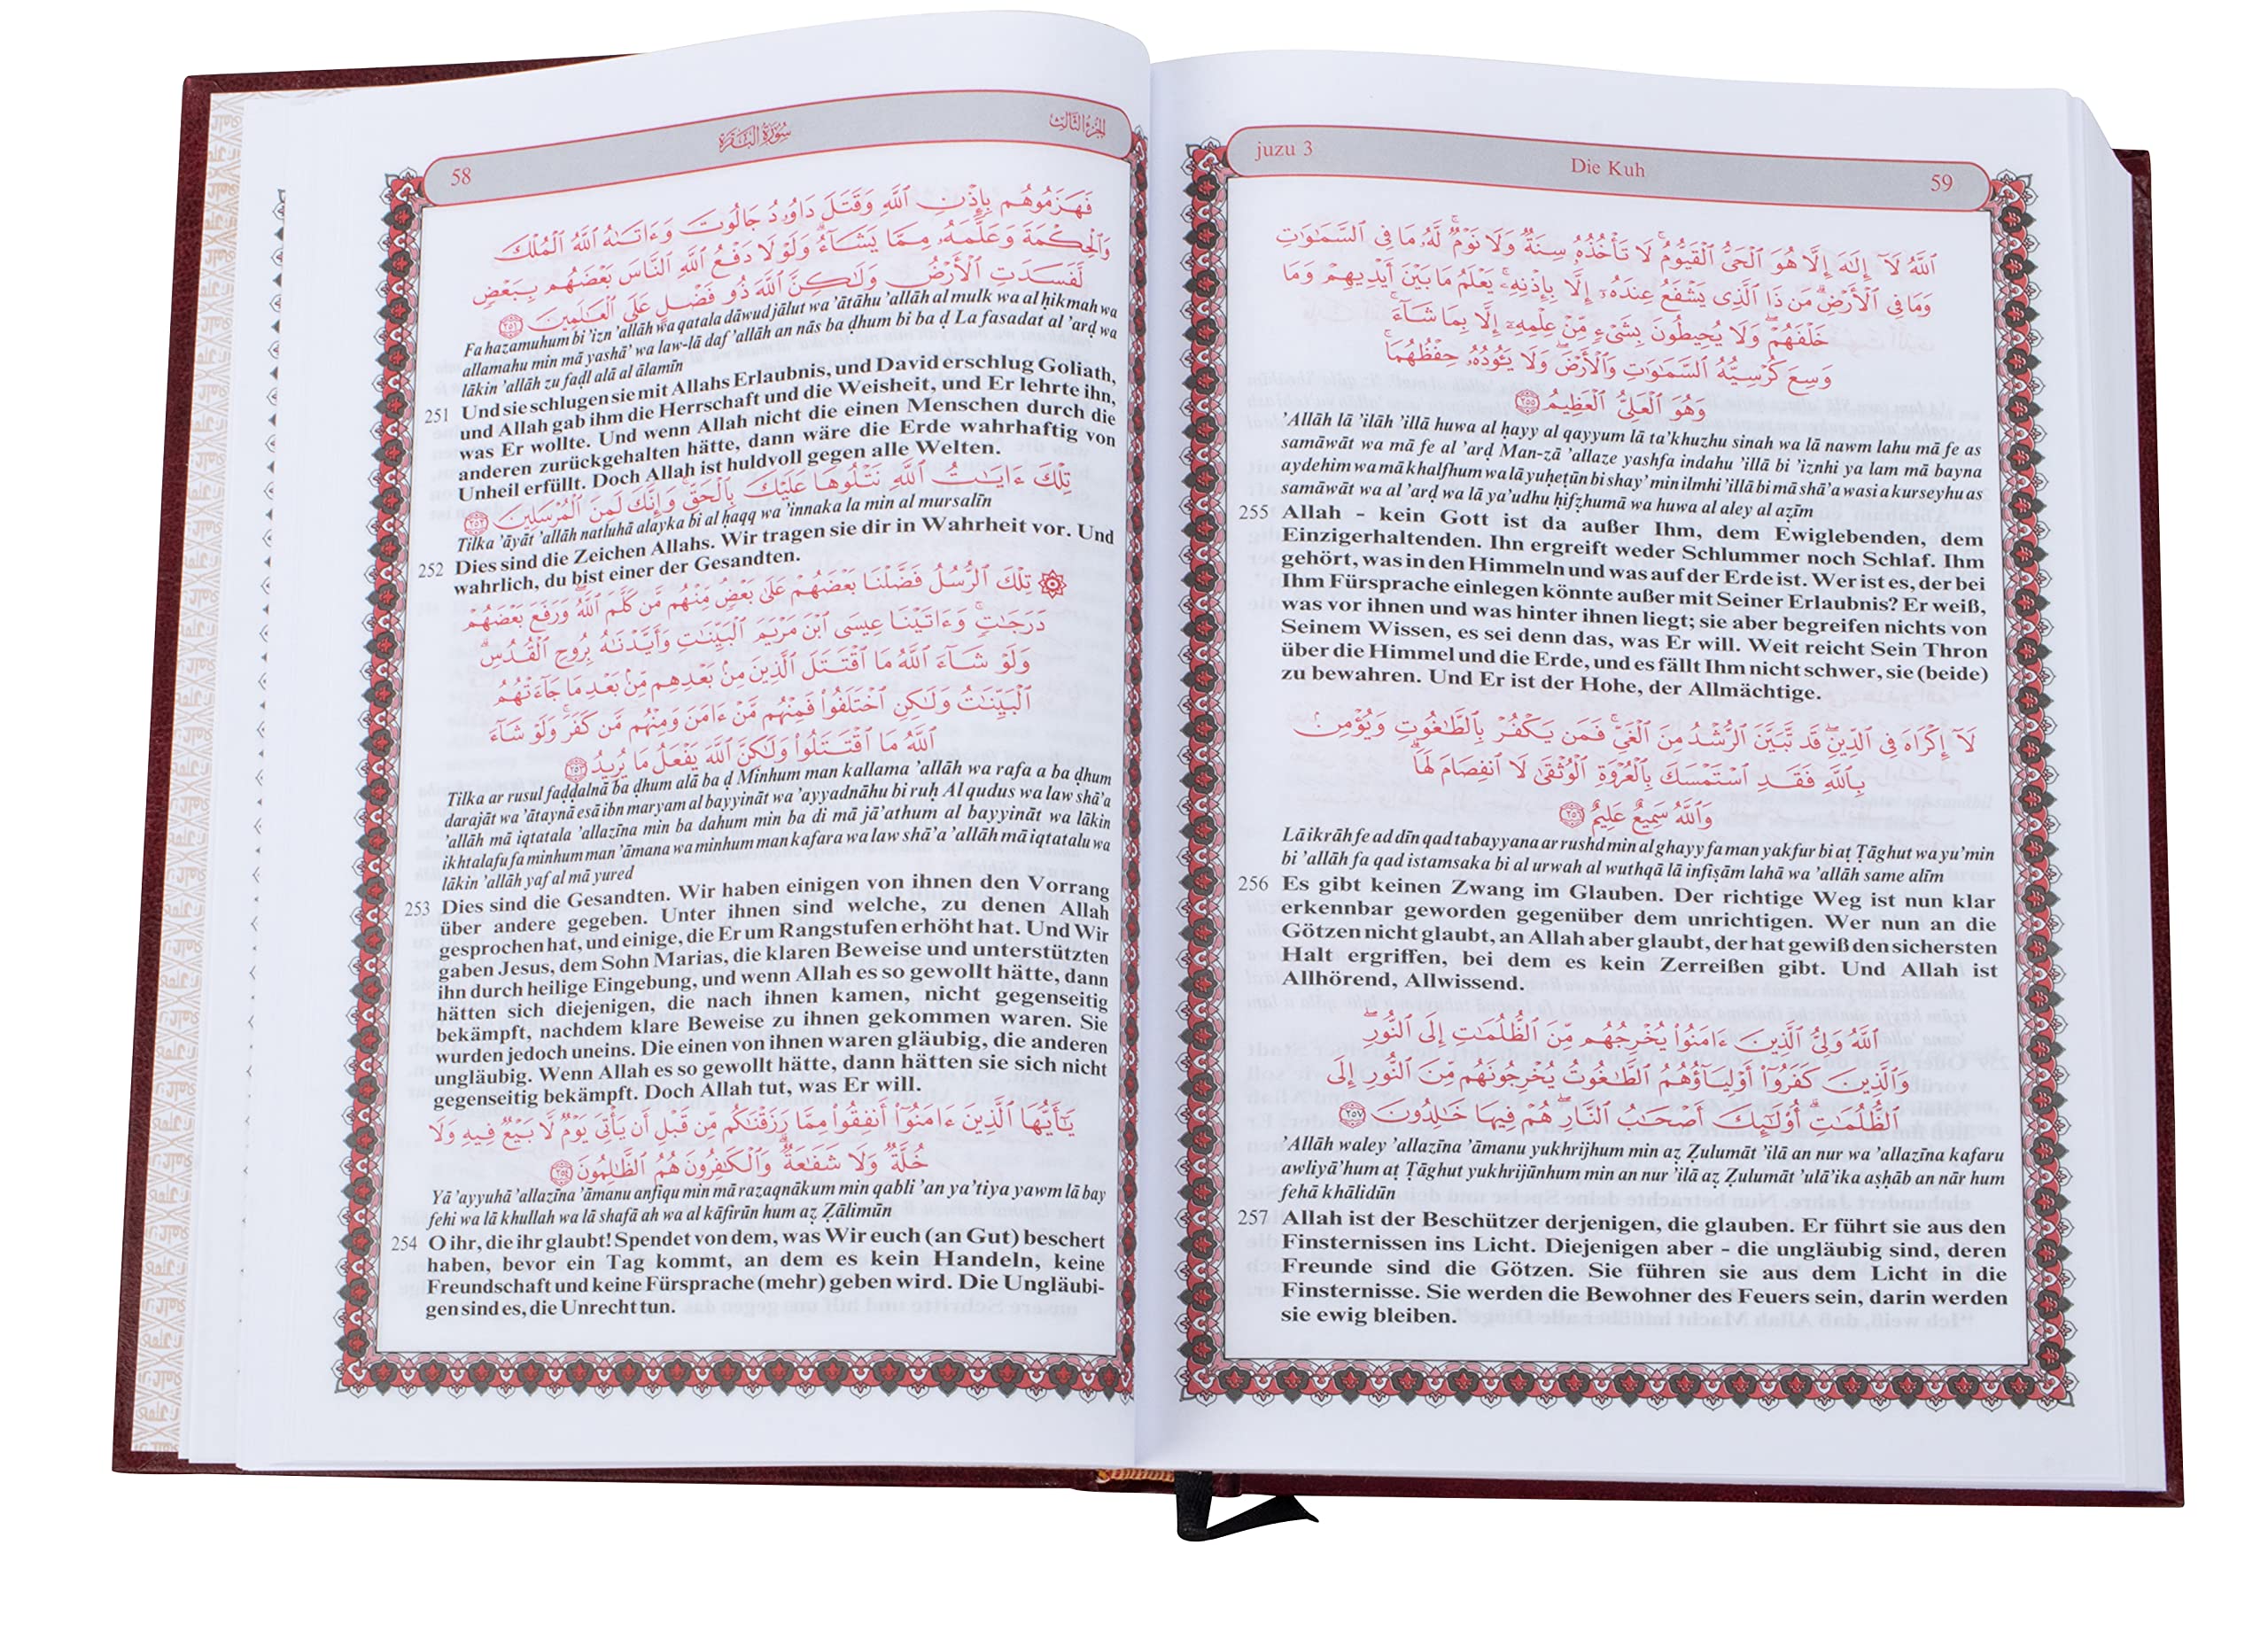 58
سُورَةُ البَقَرَةِ
الجُزءُ الثَّالِث
فَهَزَمُوهُم بِإِذْنِ ٱللَّهِ وَقَتَلَ دَاوُۥدُ جَالُوتَ وَءَاتَىٰهُ ٱللَّهُ ٱلْمُلْكَ
وَٱلْحِكْمَةَ وَعَلَّمَهُۥ مِمَّا يَشَآءُ ۗ وَلَوْلَا دَفْعُ ٱللَّهِ ٱلنَّاسَ بَعْضَهُم بِبَعْضٍ
لَّفَسَدَتِ ٱلْأَرْضُ وَلَـٰكِنَّ ٱللَّهَ ذُو فَضْلٍ عَلَى ٱلْعَـٰلَمِينَ ٢٥١
Fa hazamuhum bi ’izn ’allāh wa qatala dāwud jālut wa ’ātāhu ’allāh al mulk wa al ḥikmah wa
allamahu min mā yashā’ wa law-lā daf ’allāh an nās ba ḍhum bi ba ḍ La fasadat al ’arḍ wa
lākin ’allāh zu faḍl alā al ālamīn
251 Und sie schlugen sie mit Allahs Erlaubnis, und David erschlug Goliath,
und Allah gab ihm die Herrschaft und die Weisheit, und Er lehrte ihn,
was Er wollte. Und wenn Allah nicht die einen Menschen durch die
anderen zurückgehalten hätte, dann wäre die Erde wahrhaftig von
Unheil erfüllt. Doch Allah ist huldvoll gegen alle Welten.
تِلْكَ ءَايَـٰتُ ٱللَّهِ نَتْلُوهَا عَلَيْكَ بِٱلْحَقِّ ۚ وَإِنَّكَ لَمِنَ ٱلْمُرْسَلِينَ ٢٥٢
Tilka ’āyāt ’allāh natluhā alayka bi al ḥaqq wa ’innaka la min al mursalīn
252 Dies sind die Zeichen Allahs. Wir tragen sie dir in Wahrheit vor. Und
wahrlich, du bist einer der Gesandten.
۞ تِلْكَ ٱلرُّسُلُ فَضَّلْنَا بَعْضَهُمْ عَلَىٰ بَعْضٍ ۘ مِّنْهُم مَّن كَلَّمَ ٱللَّهُ ۖ وَرَفَعَ بَعْضَهُمْ
دَرَجَـٰتٍ ۚ وَءَاتَيْنَا عِيسَى ٱبْنَ مَرْيَمَ ٱلْبَيِّنَـٰتِ وَأَيَّدْنَـٰهُ بِرُوحِ ٱلْقُدُسِ ۗ
وَلَوْ شَآءَ ٱللَّهُ مَا ٱقْتَتَلَ ٱلَّذِينَ مِنۢ بَعْدِهِم مِّنۢ بَعْدِ مَا جَآءَتْهُمُ
ٱلْبَيِّنَـٰتُ وَلَـٰكِنِ ٱخْتَلَفُوا۟ فَمِنْهُم مَّنْ ءَامَنَ وَمِنْهُم مَّن كَفَرَ ۚ وَلَوْ شَآءَ
ٱللَّهُ مَا ٱقْتَتَلُوا۟ وَلَـٰكِنَّ ٱللَّهَ يَفْعَلُ مَا يُرِيدُ ٢٥٣
Tilka ar rusul faḍḍalnā ba ḍhum alā ba ḍ Minhum man kallama ’allāh wa rafa a ba ḍhum
darajāt wa ’ātaynā esā ibn maryam al bayyināt wa ’ayyadnāhu bi ruḥ Al qudus wa law shā’a
’allāh mā iqtatala ’allazīna min ba dahum min ba di mā jā’athum al bayyināt wa lākin
ikhtalafu fa minhum man ’āmana wa minhum man kafara wa law shā’a ’allāh mā iqtatalu wa
lākin ’allāh yaf al mā yured
253 Dies sind die Gesandten. Wir haben einigen von ihnen den Vorrang
über andere gegeben. Unter ihnen sind welche, zu denen Allah
gesprochen hat, und einige, die Er um Rangstufen erhöht hat. Und Wir
gaben Jesus, dem Sohn Marias, die klaren Beweise und unterstützten
ihn durch heilige Eingebung, und wenn Allah es so gewollt hätte, dann
hätten sich diejenigen, die nach ihnen kamen, nicht gegenseitig
bekämpft, nachdem klare Beweise zu ihnen gekommen waren. Sie
wurden jedoch uneins. Die einen von ihnen waren gläubig, die anderen
ungläubig. Wenn Allah es so gewollt hätte, dann hätten sie sich nicht
gegenseitig bekämpft. Doch Allah tut, was Er will.
يَـٰٓأَيُّهَا ٱلَّذِينَ ءَامَنُوٓا۟ أَنفِقُوا۟ مِمَّا رَزَقْنَـٰكُم مِّن قَبْلِ أَن يَأْتِىَ يَوْمٌ لَّا بَيْعٌ فِيهِ وَلَا
خُلَّةٌ وَلَا شَفَـٰعَةٌ ۗ وَٱلْكَـٰفِرُونَ هُمُ ٱلظَّـٰلِمُونَ ٢٥٤
Yā ’ayyuhā ’allazīna ’āmanu anfiqu min mā razaqnākum min qabli ’an ya’tiya yawm lā bay
fehi wa lā khullah wa lā shafā ah wa al kāfirūn hum aẓ Ẓālimūn
254 O ihr, die ihr glaubt! Spendet von dem, was Wir euch (an Gut) beschert
haben, bevor ein Tag kommt, an dem es kein Handeln, keine
Freundschaft und keine Fürsprache (mehr) geben wird. Die Ungläubi-
gen sind es, die Unrecht tun.
juzu 3
Die Kuh
59
ٱللَّهُ لَآ إِلَـٰهَ إِلَّا هُوَ ٱلْحَىُّ ٱلْقَيُّومُ ۚ لَا تَأْخُذُهُۥ سِنَةٌ وَلَا نَوْمٌ ۚ لَّهُۥ مَا فِى ٱلسَّمَـٰوَٰتِ
وَمَا فِى ٱلْأَرْضِ ۗ مَن ذَا ٱلَّذِى يَشْفَعُ عِندَهُۥٓ إِلَّا بِإِذْنِهِۦ ۚ يَعْلَمُ مَا بَيْنَ أَيْدِيهِمْ وَمَا
خَلْفَهُمْ ۖ وَلَا يُحِيطُونَ بِشَىْءٍ مِّنْ عِلْمِهِۦٓ إِلَّا بِمَا شَآءَ ۚ
وَسِعَ كُرْسِيُّهُ ٱلسَّمَـٰوَٰتِ وَٱلْأَرْضَ ۖ وَلَا يَـُٔودُهُۥ حِفْظُهُمَا ۚ
وَهُوَ ٱلْعَلِىُّ ٱلْعَظِيمُ ٢٥٥
’Allāh lā ’ilāh ’illā huwa al ḥayy al qayyum lā ta’khuzhu sinah wa lā nawm lahu mā fe as
samāwāt wa mā fe al ’arḍ Man-zā ’allaze yashfa indahu ’illā bi ’iznhi ya lam mā bayna
aydehim wa mā khalfhum wa lā yuḥeṭūn bi shay’ min ilmhi ’illā bi mā shā’a wasi a kurseyhu as
samāwāt wa al ’arḍ wa lā ya’udhu ḥifẓhumā wa huwa al aley al aẓīm
255 Allah - kein Gott ist da außer Ihm, dem Ewiglebenden, dem
Einzigerhaltenden. Ihn ergreift weder Schlummer noch Schlaf. Ihm
gehört, was in den Himmeln und was auf der Erde ist. Wer ist es, der bei
Ihm Fürsprache einlegen könnte außer mit Seiner Erlaubnis? Er weiß,
was vor ihnen und was hinter ihnen liegt; sie aber begreifen nichts von
Seinem Wissen, es sei denn das, was Er will. Weit reicht Sein Thron
über die Himmel und die Erde, und es fällt Ihm nicht schwer, sie (beide)
zu bewahren. Und Er ist der Hohe, der Allmächtige.
لَآ إِكْرَاهَ فِى ٱلدِّينِ ۖ قَد تَّبَيَّنَ ٱلرُّشْدُ مِنَ ٱلْغَىِّ ۚ فَمَن يَكْفُرْ بِٱلطَّـٰغُوتِ وَيُؤْمِنۢ
بِٱللَّهِ فَقَدِ ٱسْتَمْسَكَ بِٱلْعُرْوَةِ ٱلْوُثْقَىٰ لَا ٱنفِصَامَ لَهَا ۗ
وَٱللَّهُ سَمِيعٌ عَلِيمٌ ٢٥٦
Lā ikrāh fe ad dīn qad tabayyana ar rushd min al ghayy fa man yakfur bi aṭ Ṭāghut wa yu’min
bi ’allāh fa qad istamsaka bi al urwah al wuthqā lā infiṣām lahā wa ’allāh same alīm
256 Es gibt keinen Zwang im Glauben. Der richtige Weg ist nun klar
erkennbar geworden gegenüber dem unrichtigen. Wer nun an die
Götzen nicht glaubt, an Allah aber glaubt, der hat gewiß den sichersten
Halt ergriffen, bei dem es kein Zerreißen gibt. Und Allah ist
Allhörend, Allwissend.
ٱللَّهُ وَلِىُّ ٱلَّذِينَ ءَامَنُوا۟ يُخْرِجُهُم مِّنَ ٱلظُّلُمَـٰتِ إِلَى ٱلنُّورِ ۖ
وَٱلَّذِينَ كَفَرُوٓا۟ أَوْلِيَآؤُهُمُ ٱلطَّـٰغُوتُ يُخْرِجُونَهُم مِّنَ ٱلنُّورِ إِلَى
ٱلظُّلُمَـٰتِ ۗ أُو۟لَـٰٓئِكَ أَصْحَـٰبُ ٱلنَّارِ ۖ هُمْ فِيهَا خَـٰلِدُونَ ٢٥٧
’Allāh waley ’allazīna ’āmanu yukhrijhum min aẓ Ẓulumāt ’ilā an nur wa ’allazīna kafaru
awliyā’hum aṭ Ṭāghut yukhrijūnhum min an nur ’ilā aẓ Ẓulumāt ’ulā’ika aṣḥāb an nār hum
fehā khālidūn
257 Allah ist der Beschützer derjenigen, die glauben. Er führt sie aus den
Finsternissen ins Licht. Diejenigen aber - die ungläubig sind, deren
Freunde sind die Götzen. Sie führen sie aus dem Licht in die
Finsternisse. Sie werden die Bewohner des Feuers sein, darin werden
sie ewig bleiben.